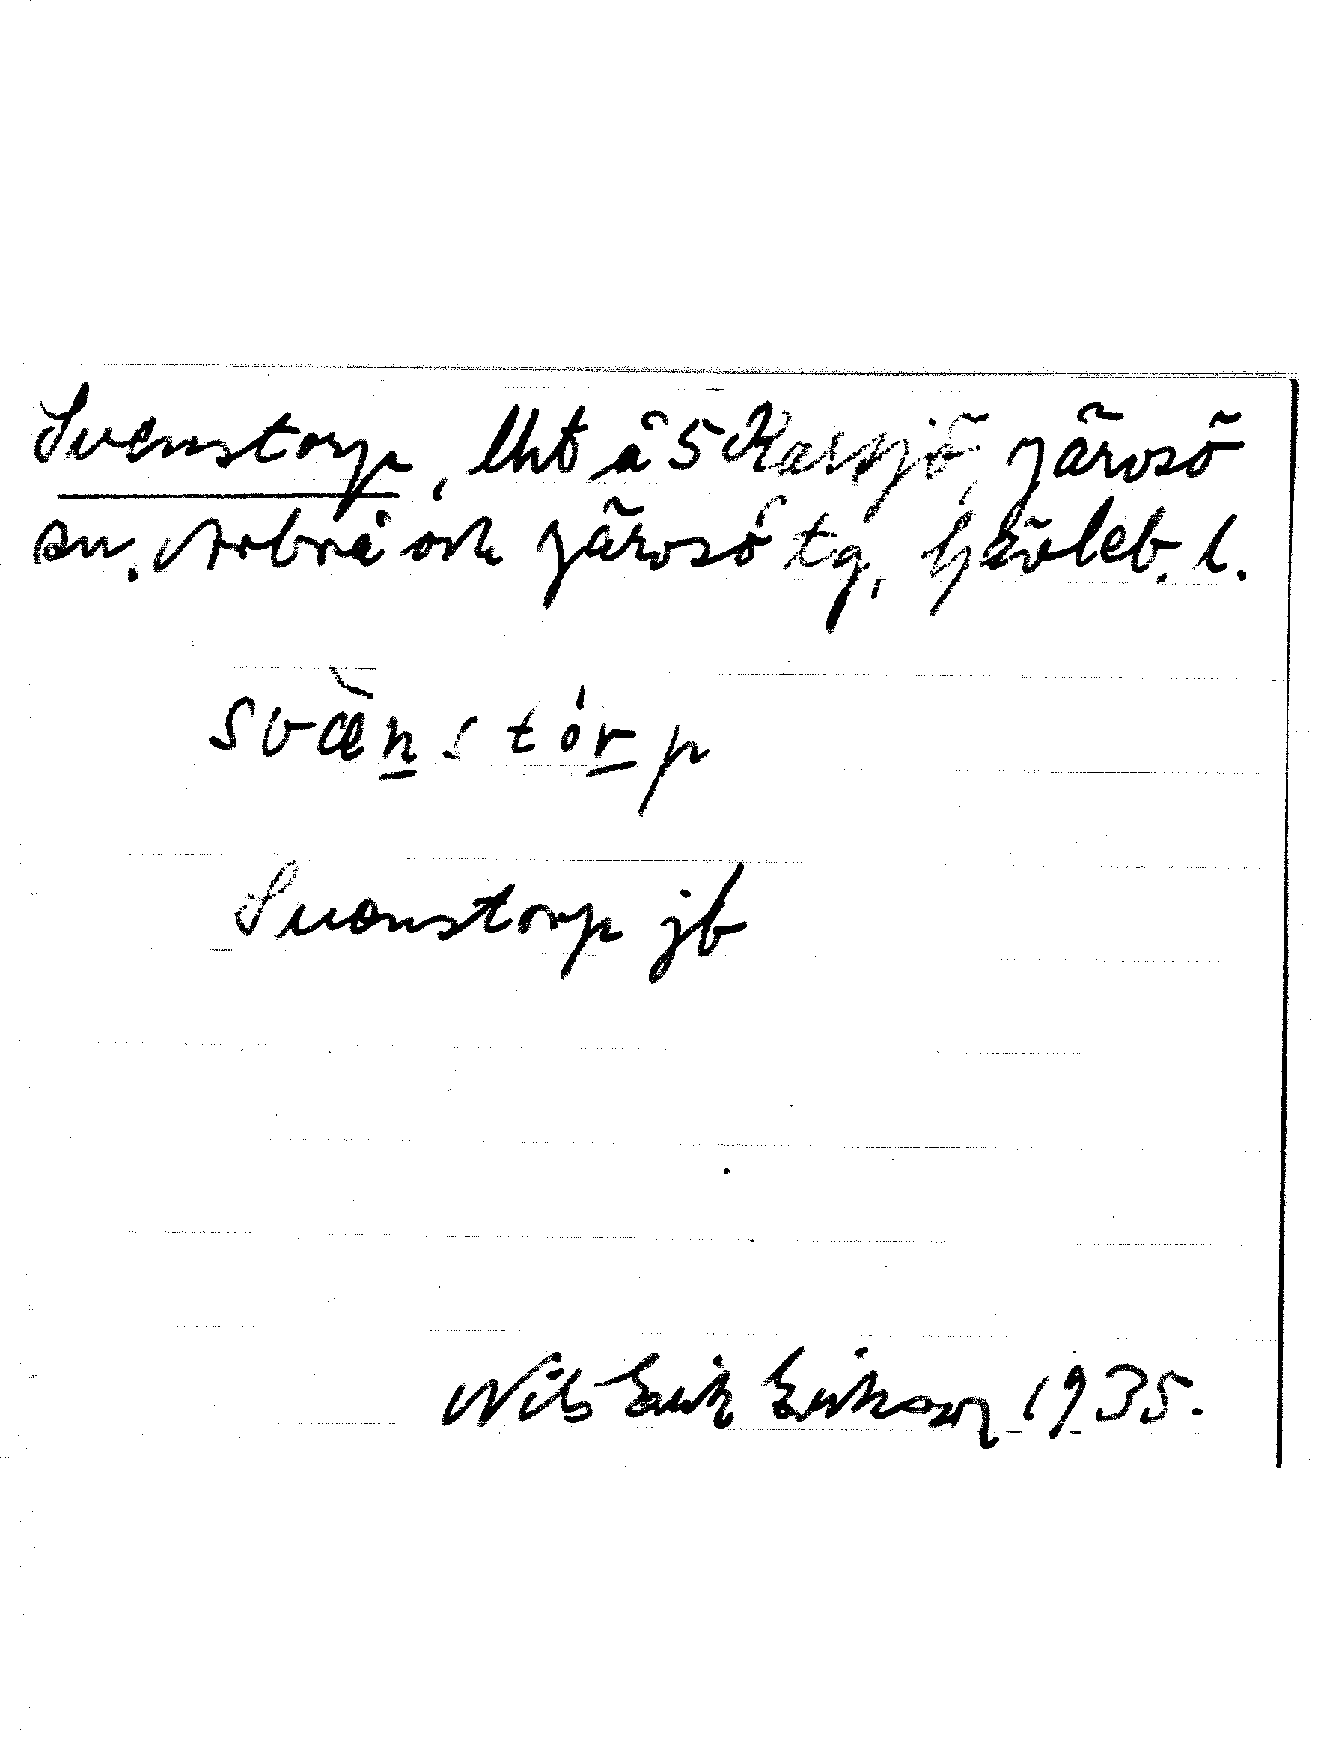 Svenstorp, lht å 5 Karsjö, Järvsö
sn. Arbrå och Järvsö tg, Gävleb. l.
svæ̀n̲stór̲p
Svenstorp jb
Nils Erik Erikson 1935.